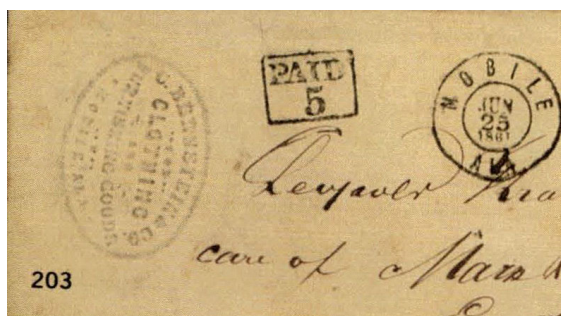 C. BERNSTEIN & CO.
CLOTHING
AND
FURNISHING GOODS
MOBILE ALA
PAID
5
MOBILE
JUN
25
1861
ALA
care of Marx &
203